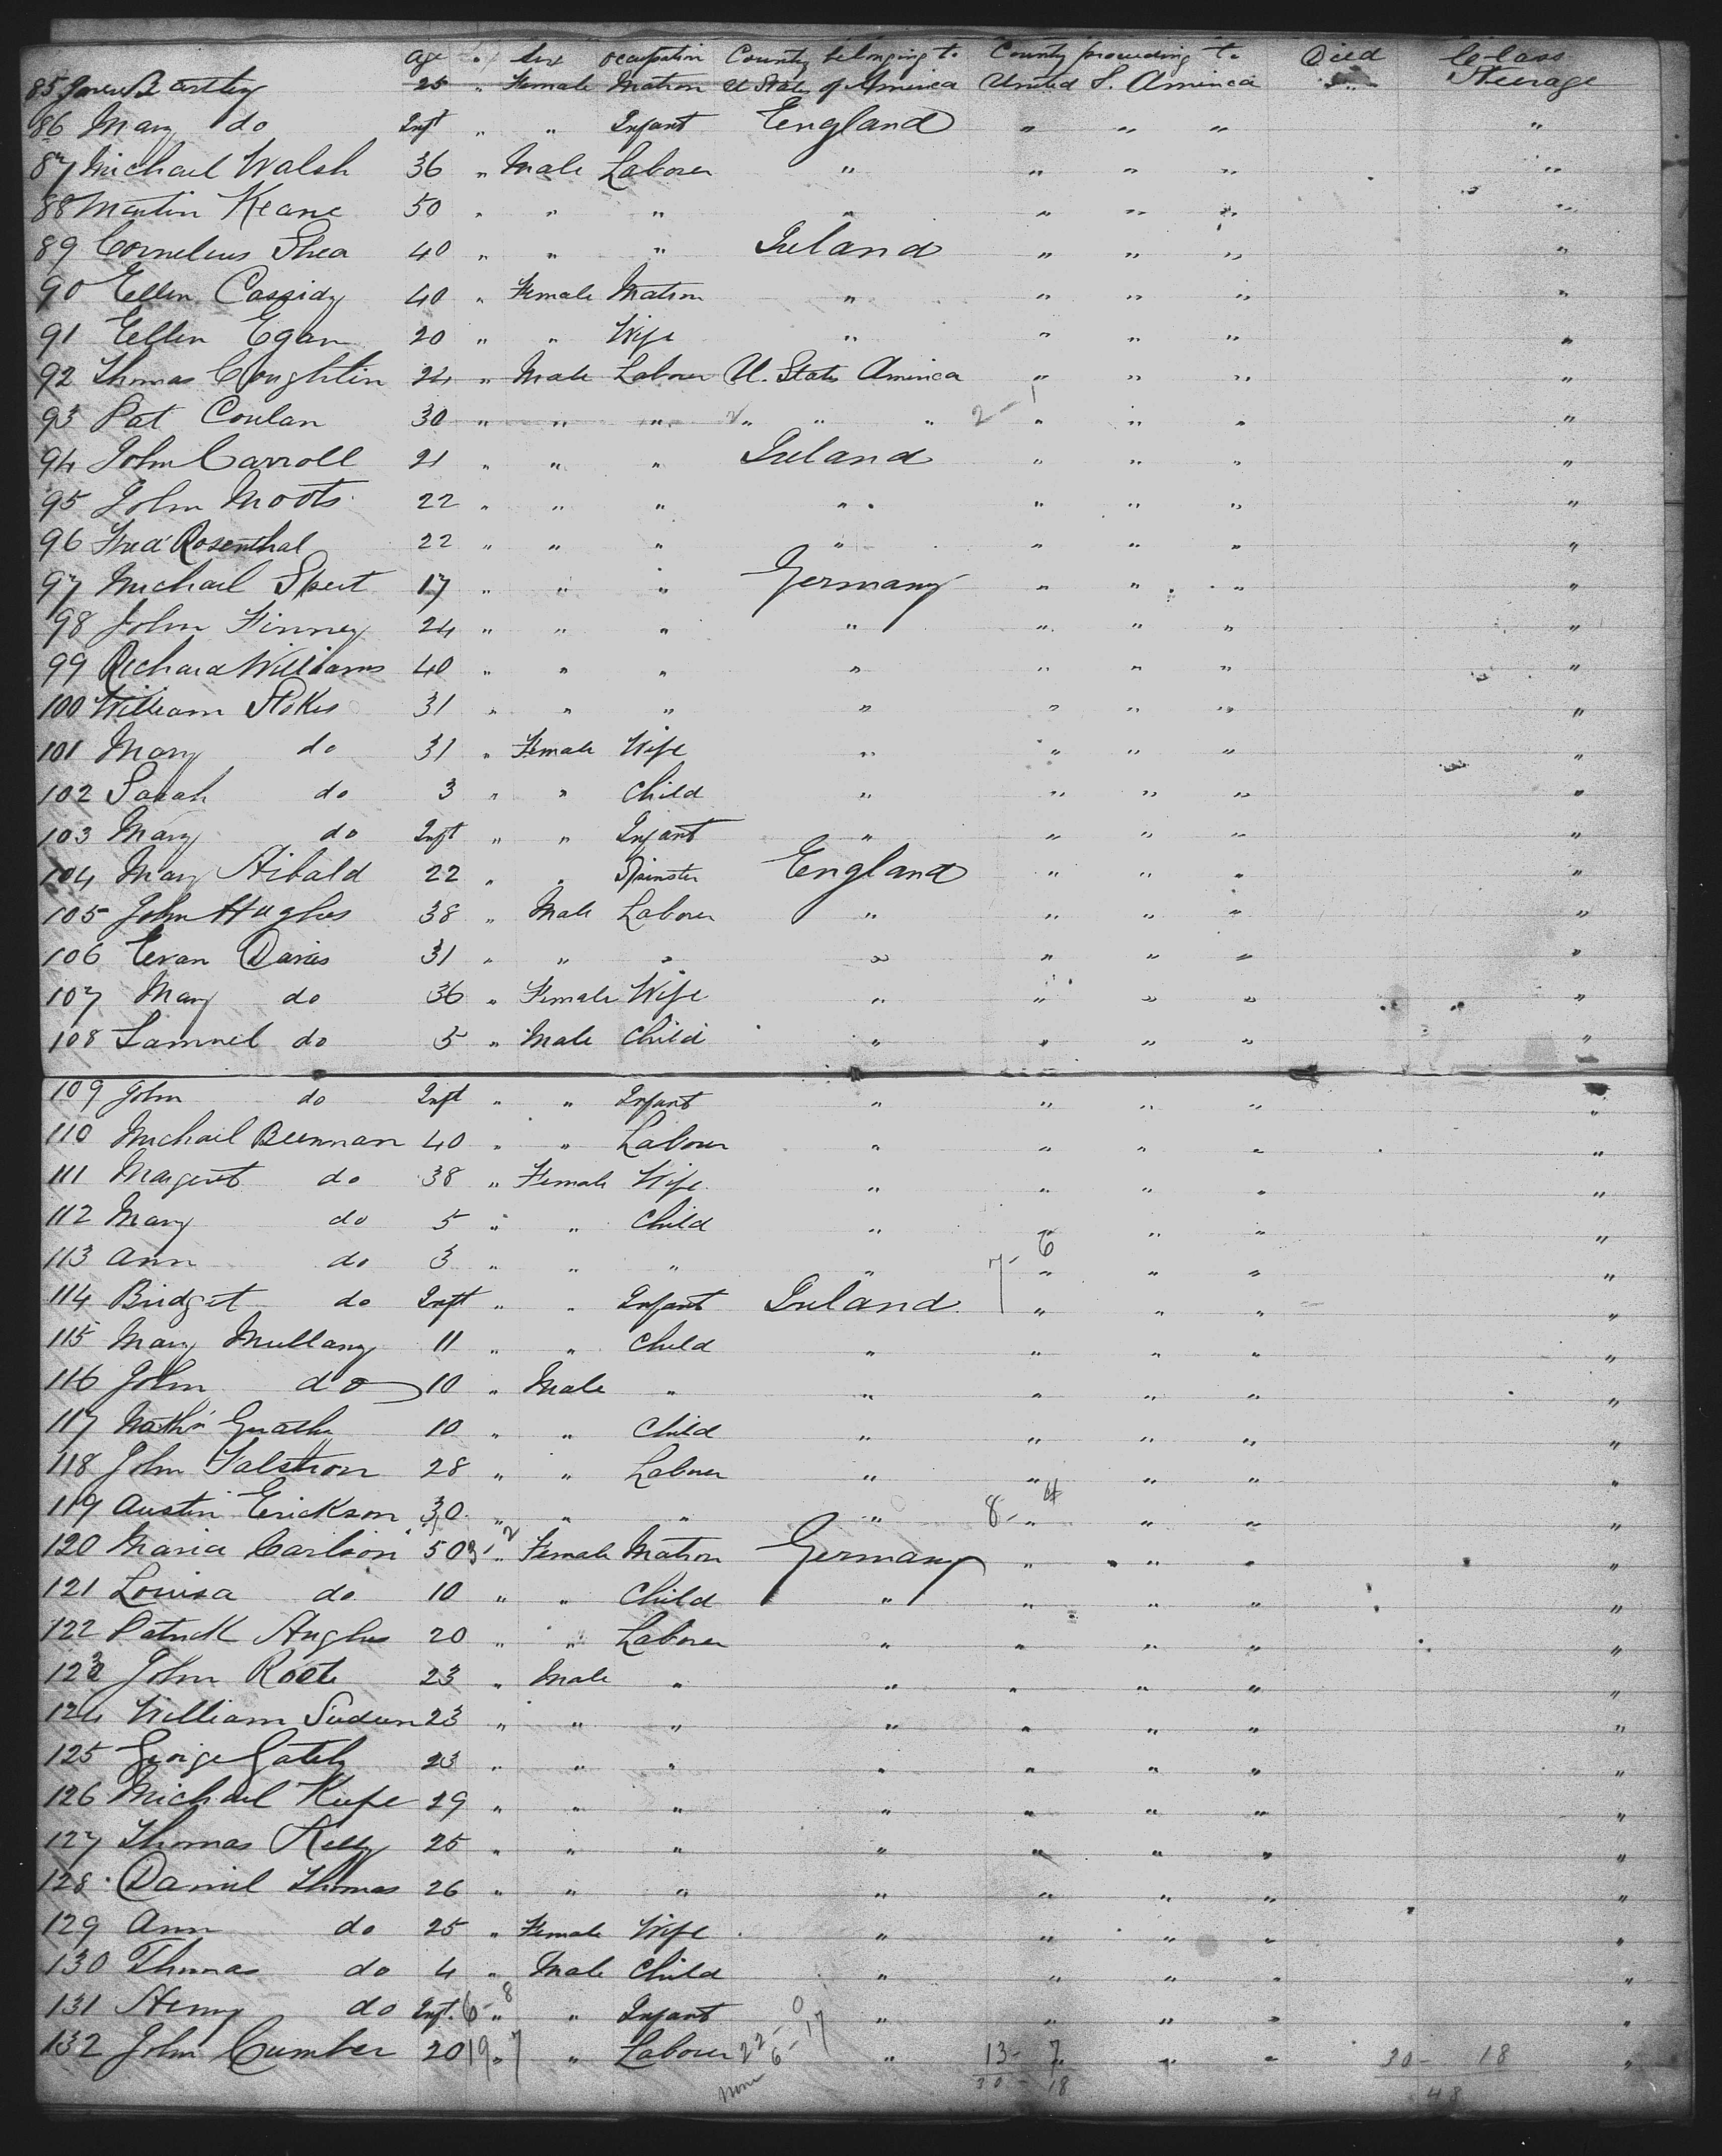 Age Sex Occupation Country belonging to Country proceeding to Died Class
85 Bartley 25 " Female Matron U States of America United S. America " Steerage
86 Mary do Inft " " Infant England " " " "
87 Michael Walsh 36 " Male Laborer " " " " "
88 Martin Keane 50 " " " " " " " "
89 Cornelius Shea 40 " " " Ireland " " " "
90 Ellen Cassidy 40 " Female Matron " " " " "
91 Ellen Egan 20 " " Wife " " " " "
92 Thomas Coughlin 24 " Male Laborer U. States America " " " "
93 Pat Conlan 30 " " " " " " 2 - 1 " " " "
94 John Carroll 21 " " " Ireland " " " "
95 John Moots 22 " " " " " " " "
96 Fred Rosenthal 22 " " " " " " " "
97 Michael 17 " " " Germany " " " "
98 John Finney 24 " " " " " " " "
99 Richard Williams 40 " " " " " " " "
100 William Stokes 31 " " " " " " " "
101 Mary do 31 " Female Wife " " " " "
102 Sarah do 3 " " Child " " " " "
103 Mary do Inft " " Infant " " " " "
104 Mary 22 " " Spinster England " " " "
105 John Hughes 38 " Male Laborer " " " " "
106 Evan Davies 31 " " " " " " " "
107 Mary do 36 " Female Wife " " " " "
108 Samuel do 5 " Male Child " " " " "
109 John do Inft " " Infant " " " " "
110 Michael Brennan 40 " " Laborer " " " " "
111 Margeret do 38 " Female Wife " " " " "
112 Mary do 5 " " Child " " " " "
113 Ann do 3 " " " " 7 - 6 " " " "
114 Bridget do Inft " " Infant Ireland " " " "
115 Mary Mullany 11 " " Child " " " " "
116 John do 10 " Male " " " " " "
117 10 " " Child " " " " "
118 John 28 " " Laborer " " " " "
119 Austin Erickson 30 " " " " 8 - 4 " " " "
120 Maria Carlson 50 3 - 2 " Female Matron Germany " " " "
121 Louisa do 10 " " Child " " " " "
122 Patrick Hughes 20 " " Laborer " " " " "
123 John 23 " Male " " " " " "
124 William 23 " " " " " " " "
125 George Gately 23 " " " " " " " "
126 Michael Keefe 29 " " " " " " " "
127 Thomas Kelly 25 " " " " " " " "
128 Daniel Thomas 26 " " " " " " " "
129 Ann do 25 " Female Wife " " " " "
130 Thomas do 4 " Male Child " " " " "
131 Henry do Inft. 6 - 8 " " Infant " " " " "
132 John Cumber 20 19 - 7 " " Laborer 22 - 0 6 - 17 " 13 - 7 " " 30 - 18 "
None 30 - 18 48